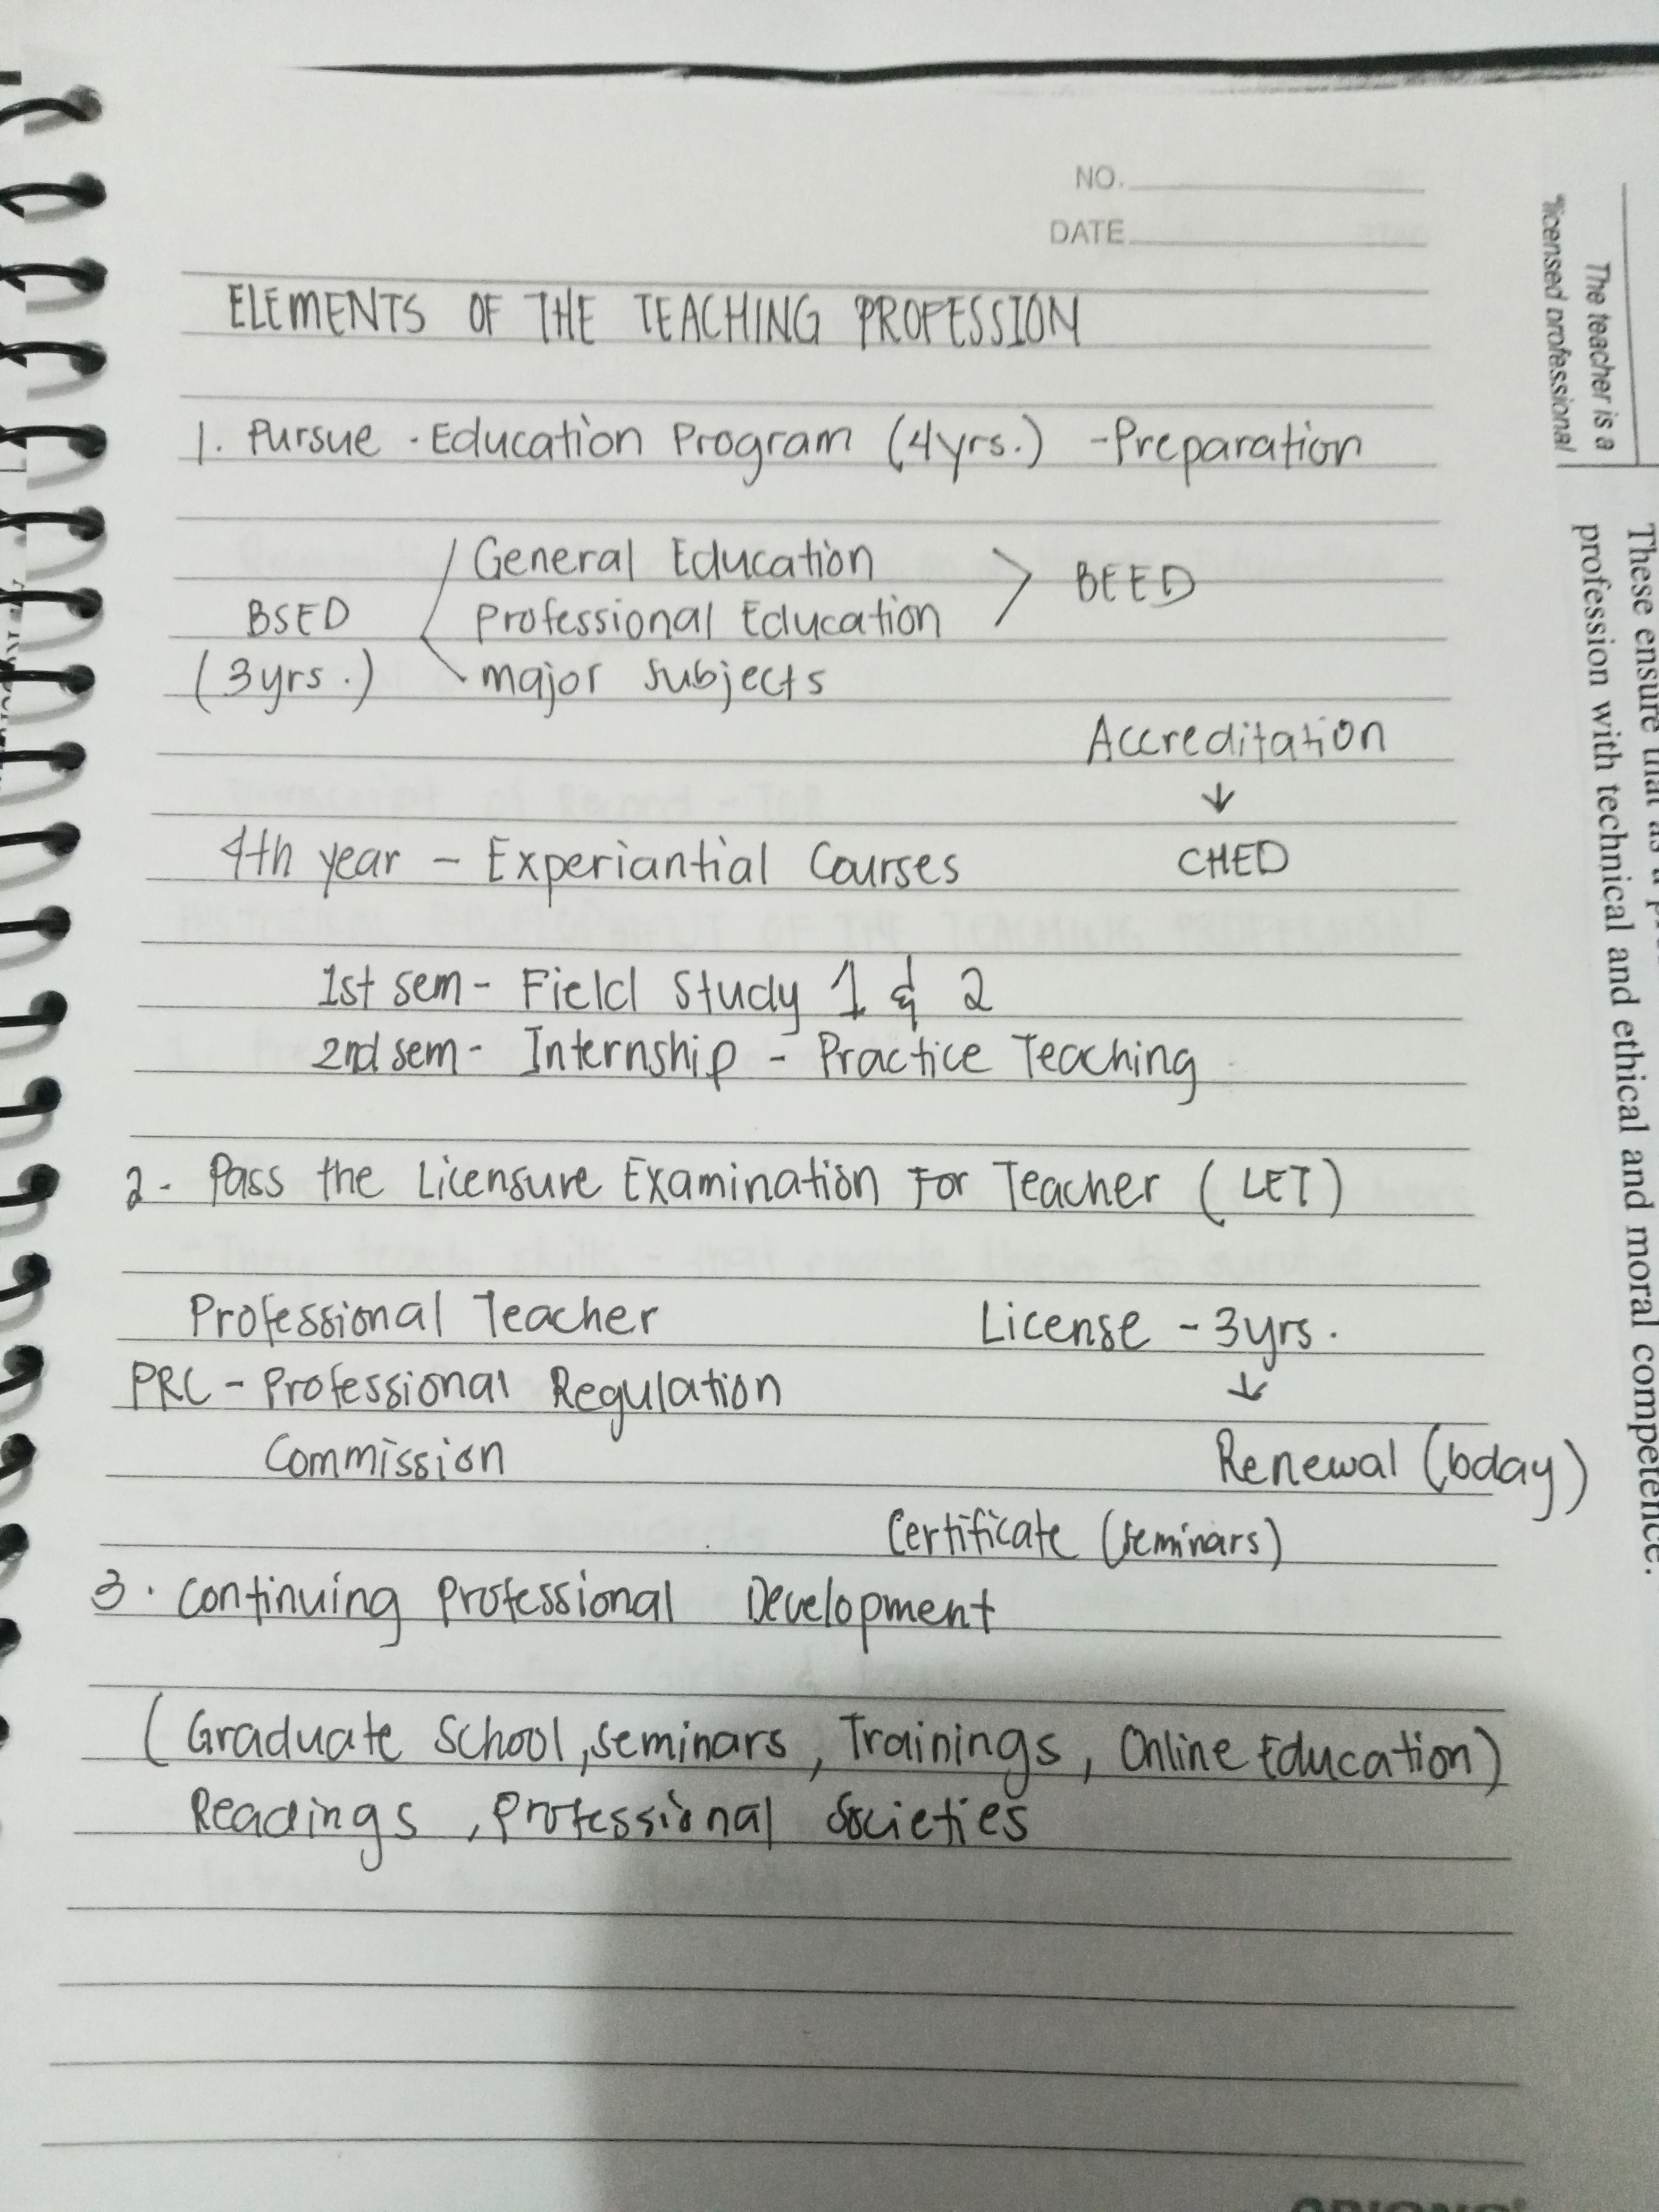 NO.
DATE
ELEMENTS OF THE TEACHING PROFESSION
1. Pursue - Education Program (4yrs.) - Preparation
General Education
BEED
BSED
Professional Education
(3yrs.)
major subjects
Accreditation
↓
4th year - Experiantial Courses
CHED
1st sem - Field Study 1 & 2
2nd sem - Internship - Practice Teaching
2. Pass the Licensure Examination For Teacher (LET)
Professional Teacher
License - 3yrs.
PRC - Professional Regulation
↓
Commission
Renewal (bday)
Certificate (seminars)
3. Continuing Professional Development
(Graduate School, seminars, Trainings, Online Education)
Readings, Professional Societies
The teacher is a
"licensed professional
These ensure that as a
profession with technical and ethical and moral competence.